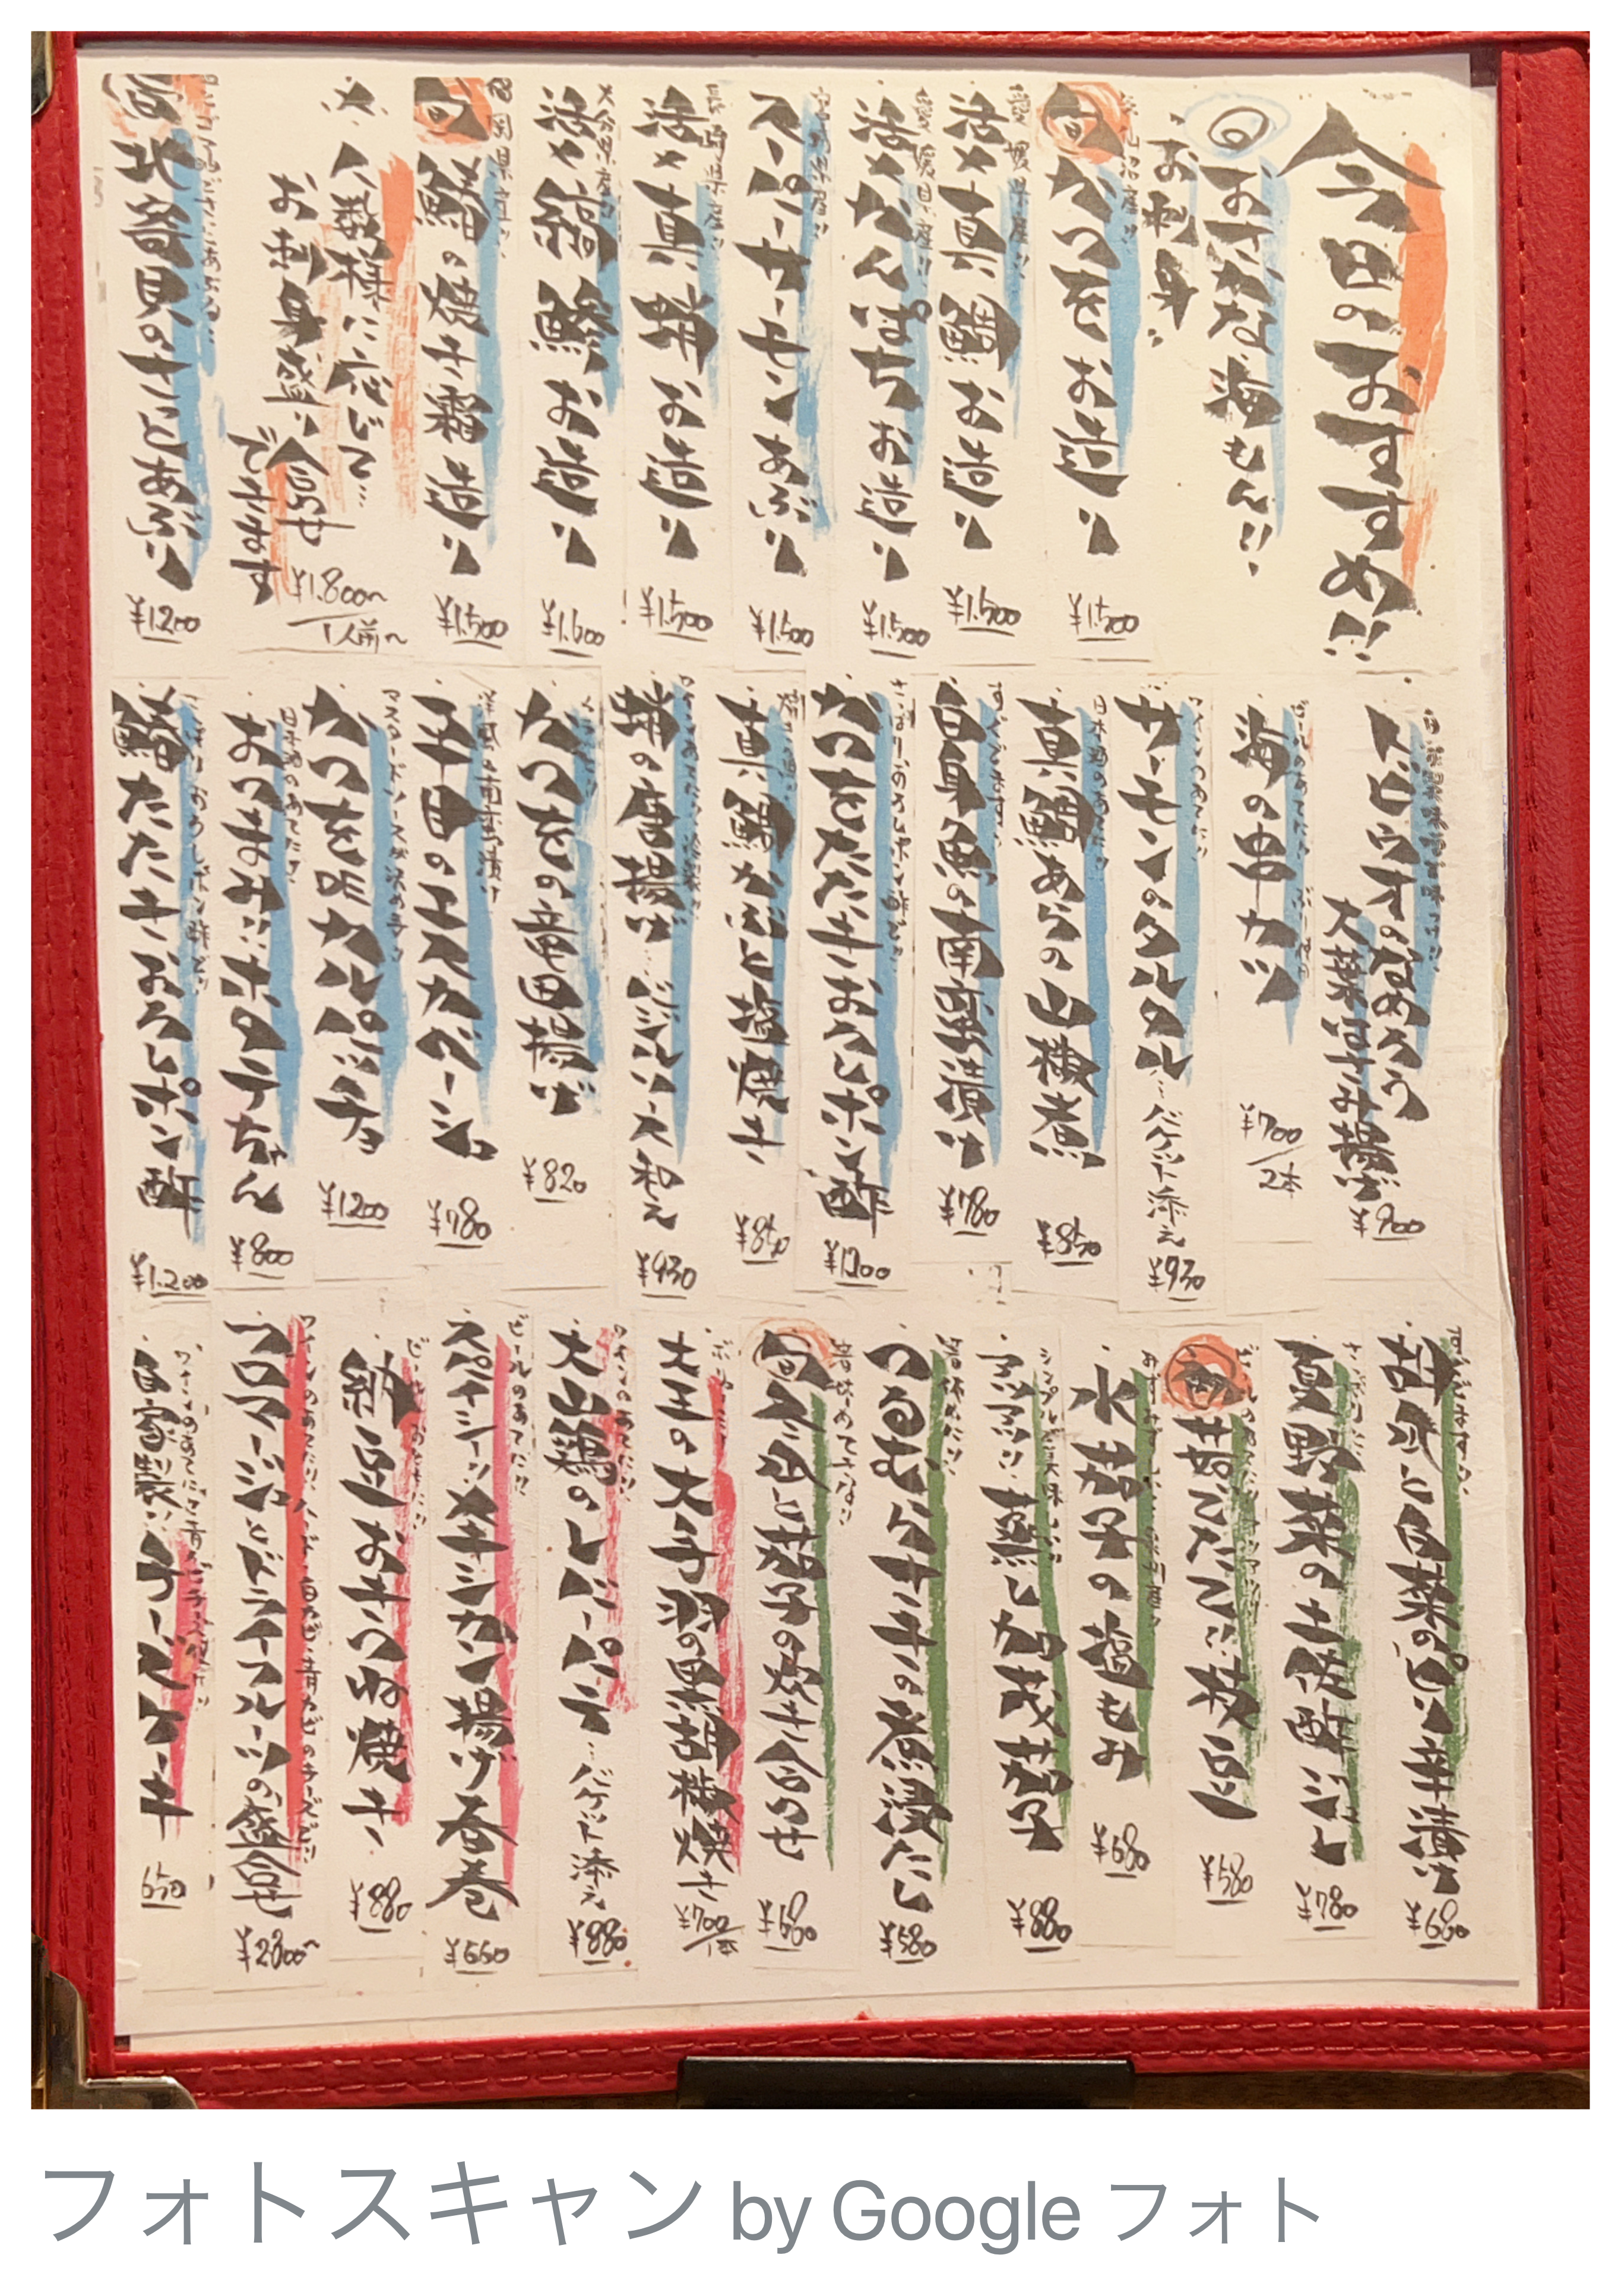 今日のおすすめ!!
おさかな海もん!!
お刺身
気仙沼産!!
旬
かつをお造り
¥1.500
愛媛県産!!
活〆真鯛お造り
¥1.500
愛媛県産!!
活〆かんぱちお造り
¥1.500
サーモンあぶり
¥1.500
長崎県産!!
活〆真蛸お造り
¥1.500
大分県産!!
活〆縞鯵お造り
¥1.600
福岡県産!!
旬
鰆の焼き霜造り
¥1.500
人数様に応じて…
お刺身盛り合せ
できます
¥1.800〜
1人前〜
北寄貝のさっとあぶり
¥1.200
トロウオのなめろう
大葉はさみ揚げ
¥900
海の串カツ
¥700
2本
サーモンのタルタル
バケット添え
¥930
日本酒のあてに!!
真鯛あらの山椒煮
¥850
白身魚の南蛮漬け
¥780
さっぱりおろしポン酢で!!
かつをたたきおろしポン酢
¥1200
真鯛かぶと塩焼き
¥850
蛸の唐揚げ
ソース和え
¥930
かつをの竜田揚げ
¥820
洋風の南蛮漬け
平目のエスカベージュ
¥780
マスタードソースが決め手!!
かつを炙カルパッチョ
¥1200
日本酒のあてに!!
おつまみ!!ホタテちゃん
¥800
さっぱりおろしポン酢で!!
鰆たたきおろしポン酢
¥1.200
胡瓜と白菜のピリ辛漬け
¥680
夏野菜の土佐酢ジュレ
¥780
旬
茹でたて!!枝豆
¥580
水茄子の塩もみ
¥680
蒸し加茂茄子
¥880
箸休めに!!
つるむらさきの煮浸だし
¥580
旬
茄子の炊き合わせ
¥680
大山の大手羽の黒胡椒焼き
¥700
1本
ワインのあてに!!
大山鶏のレバーパテ
バケット添え
¥880
ビールのあてに!!
スパイシー!!メキシカン揚げ春巻
¥660
ビールのおともに!!
納豆おきつね焼き
¥880
フロマージュとドライフルーツの盛合せ
¥2.800〜
自家製!!チーズケーキ
650
フォトスキャン by Google フォト